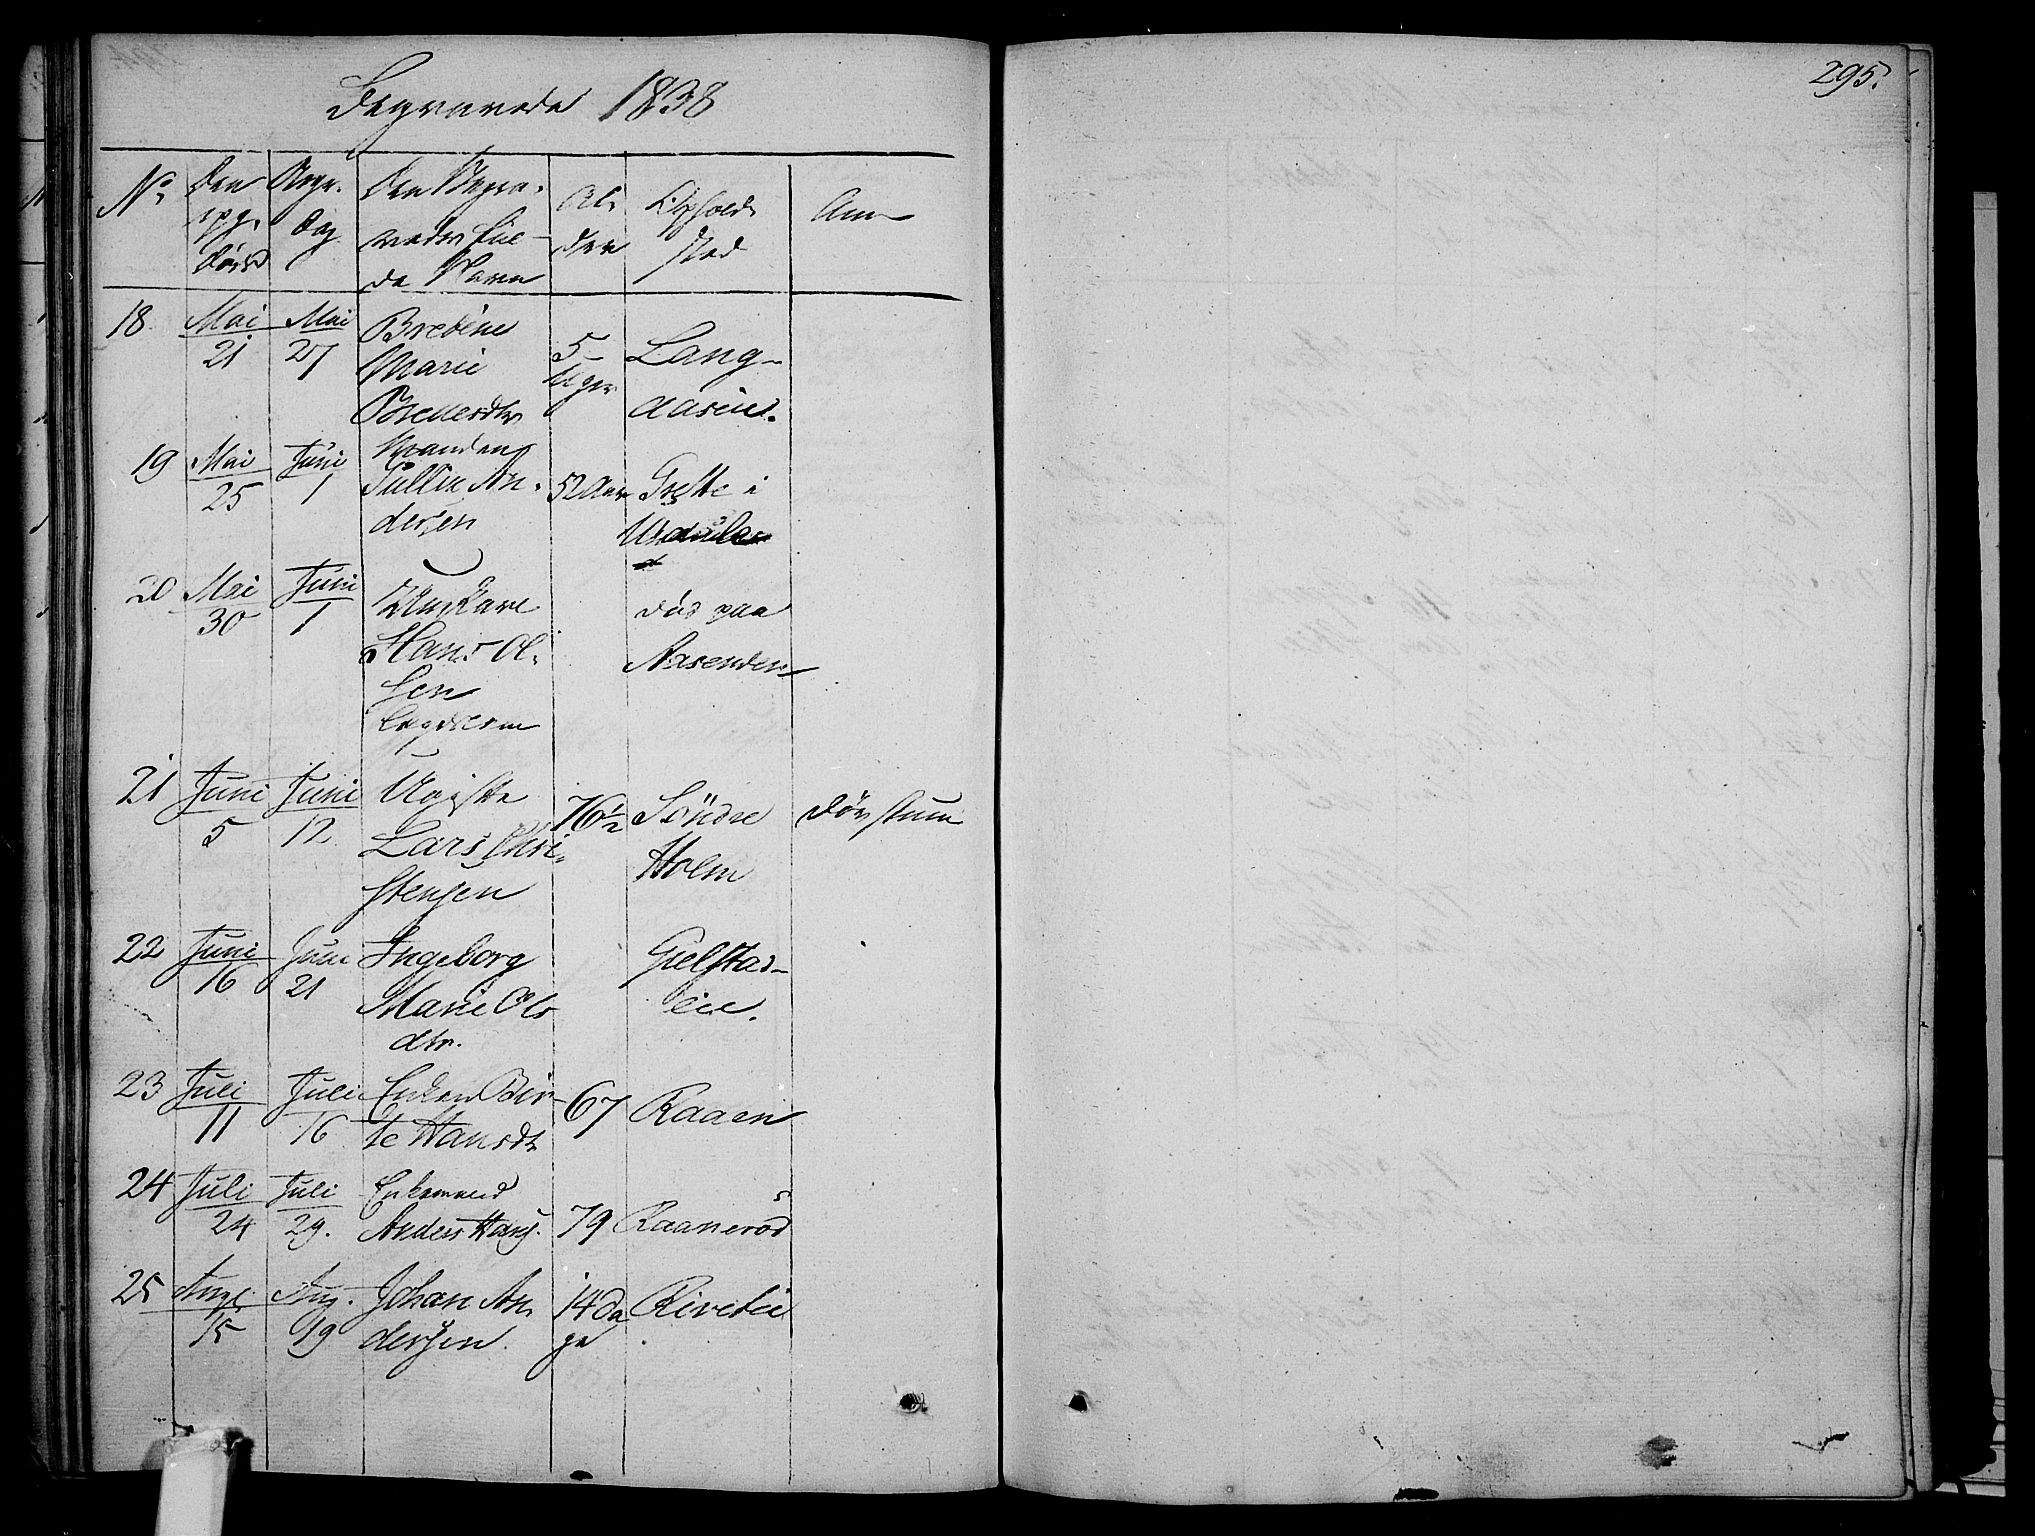 295.
Begravede 1838
No Den opg. Død Begr. Dag Den Begravedes fulde Navn Alderen Opholdssted Anm
18 Mai 21 Mai 27 Bredine
Marie
5 Uger Lang-
aasene.
19 Mai 25 Juni 1 Manden
Gullik An-
dersen
52 Aar Grette i
20 Mai 30 Juni 1 Ungkarl
Hans Ol-
sen
død paa
Aasenden
21 Juni 5 Juni 12
Lars Chri-
stensen
76½ Söndre
Holm
Døvstum
22 Juni 16 Juni 21 Ingeborg
Marie Ols
dtr.
Gielstad-
eie.
23 Juli 11 Juli 16 Enken Bir-
te Hansdtr
67 Raaen
24 Juli 24 Juli 29. Enkemand
Anders Hans.
79 Raanerød
25 Aug. 15 Aug. 19 Johan An-
dersen.
14 Da
ge